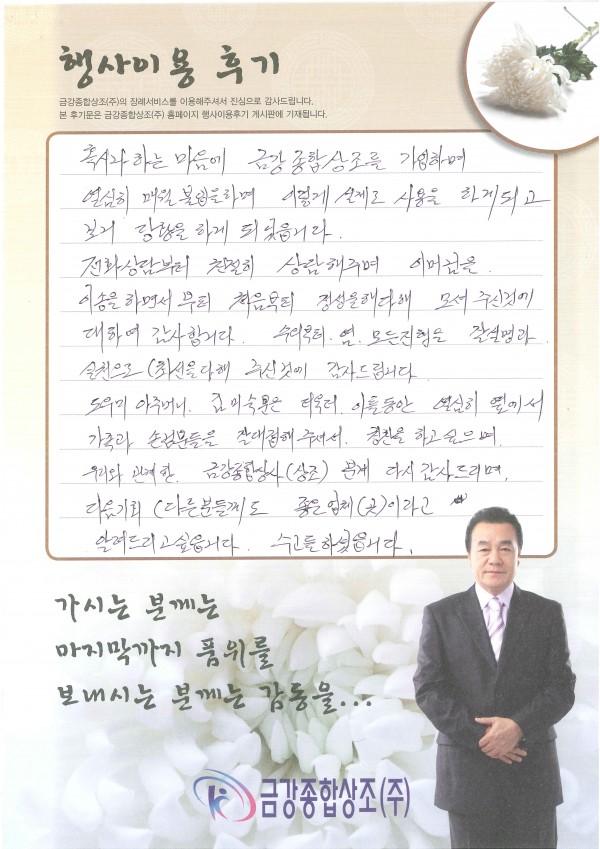 행사이용 후기
금강종합상조(주)의 장례서비스를 이용해주셔서 진심으로 감사드립니다.
본 후기문은 금강종합상조(주) 홈페이지 행사이용후기 게시판에 기재됩니다.
혹시나 하는 마음에 금강종합상조를 가입하며
열심히 매월 불입을하며 이렇게 실제로 사용을 하게되고
보니 당황을 하게 되었읍니다.
전화상담부터 친절히 상담해주며 어머님을
이송을하면서 부터 처음부터 정성을해다해 모셔주신것에
대하여 감사합니다. 수의부터. 염. 모든진행을 잘설명과
실천으로 (최선을다해 주신것에 감사드립니다.
도우미 아주머니. 김미숙분은 더욱더. 이틀동안 열심히 옆에서
가족과 손님분들을 잘대접해주셔서. 칭찬을 하고싶으며.
우리와 관계한. 금강종합상사(상조) 분께 다시감사드리며,
다음기회 (다른분들께도 좋은업체(곳)이라고
알려드리고싶읍니다. 수고들하셨읍니다.
가시는 분께는
마지막까지 품위를
보내시는 분께는 감동을...
금강종합상조(주)